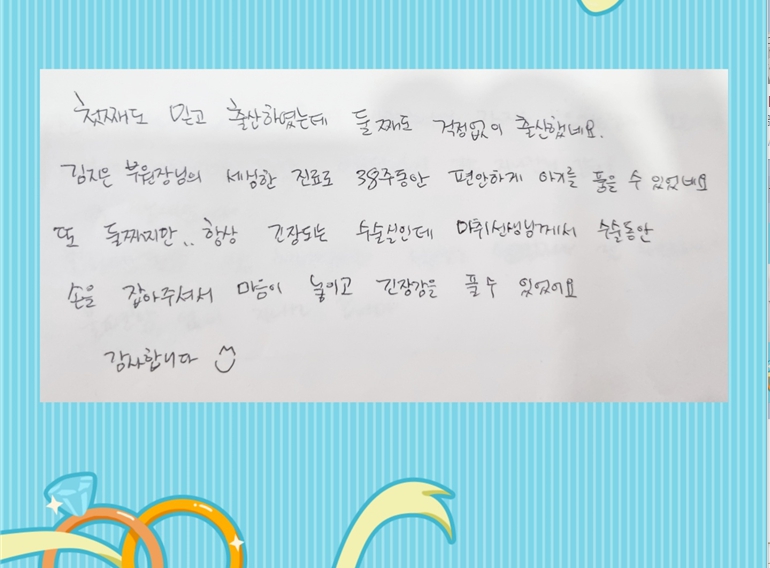 첫째도 믿고 출산하였는데 둘째도 걱정없이 출산했네요.
김지은 부원장님의 세심한 진료로 38주동안 편안하게 아기를 품을 수 있었네요
또 둘째지만.. 항상 긴장되는 수술실인데 마취선생님께서 수술동안
손을 잡아주셔서 마음이 놓이고 긴장감을 풀 수 있었어요
감사합니다